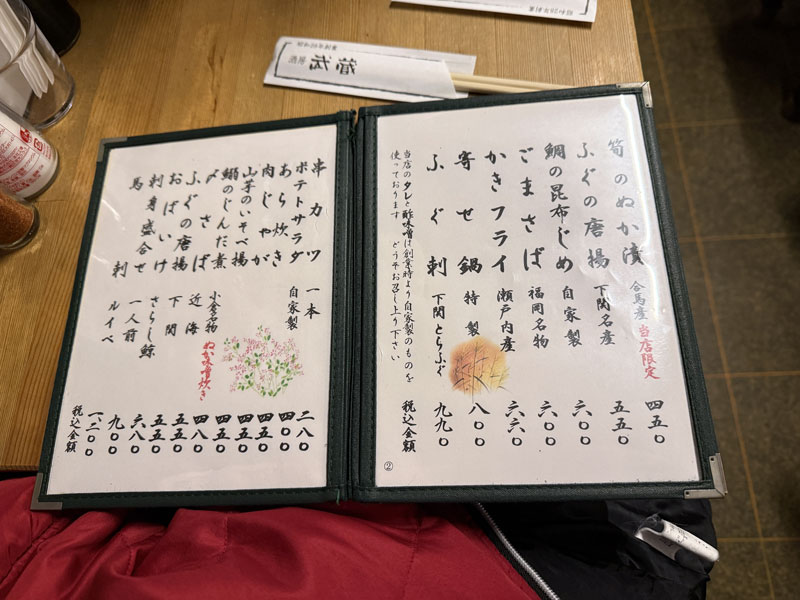 筍のぬか漬 合馬産 当店限定 四五〇
ふぐの唐揚 下関名産 五五〇
鯛の昆布じめ 自家製 六〇〇
ごまさば 福岡名物 六〇〇
かきフライ 瀬戸内産 六六〇
寄せ鍋 特製 八〇〇
ふぐ刺 下関とらふぐ 九九〇
税込金額
当店のタレと酢味噌は創業時より自家製のものを
使っております どうぞお召し上り下さい
②
串カツ 一本 二八〇
ポテトサラダ 自家製 四〇〇
あら炊き 四五〇
肉じゃが 四五〇
山芋のいそべ揚 四五〇
鰯のじんだ煮 小倉名物 ぬか味噌炊き 四八〇
〆さば 近海 五五〇
ふぐの唐揚 下関 五五〇
おばいけ さらし鯨 六八〇
刺身盛合せ 一人前 九〇〇
馬刺 ルイベ 一、二〇〇
税込金額
酒房 武蔵
昭和28年創業